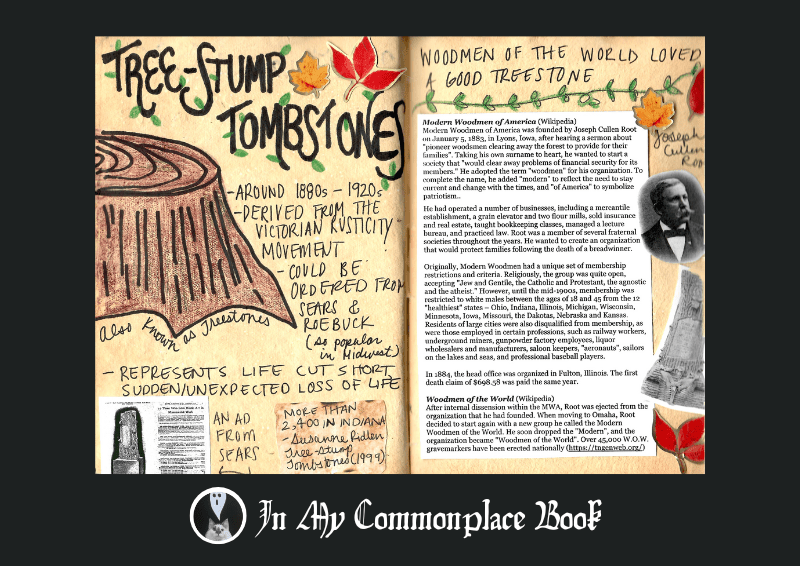 TREE-STUMP
TOMBSTONES
-AROUND 1880s – 1920s
-DERIVED FROM THE
VICTORIAN RUSTICITY
MOVEMENT
-COULD BE
ORDERED FROM
SEARS &
ROEBUCK
(so popular
in Midwest)
also known as Treestones
- REPRESENTS LIFE CUT SHORT
SUDDEN/UNEXPECTED LOSS OF LIFE
AN AD
FROM
SEARS
MORE THAN
2,400 IN INDIANA
-Susanne Ridlen
Tree-Stump
Tombstones (1999)
WOODMEN OF THE WORLD LOVED
A GOOD TREESTONE
Joseph
Cullen
Root
Modern Woodmen of America (Wikipedia)
Modern Woodmen of America was founded by Joseph Cullen Root
on January 5, 1883, in Lyons, Iowa, after hearing a sermon about
"pioneer woodsmen clearing away the forest to provide for their
families". Taking his own surname to heart, he wanted to start a
society that "would clear away problems of financial security for its
members." He adopted the term "woodmen" for his organization. To
complete the name, he added "modern" to reflect the need to stay
current and change with the times, and "of America" to symbolize
patriotism..
He had operated a number of businesses, including a mercantile
establishment, a grain elevator and two flour mills, sold insurance
and real estate, taught bookkeeping classes, managed a lecture
bureau, and practiced law. Root was a member of several fraternal
societies throughout the years. He wanted to create an organization
that would protect families following the death of a breadwinner.
Originally, Modern Woodmen had a unique set of membership
restrictions and criteria. Religiously, the group was quite open,
accepting "Jew and Gentile, the Catholic and Protestant, the agnostic
and the atheist." However, until the mid-1900s, membership was
restricted to white males between the ages of 18 and 45 from the 12
"healthiest" states – Ohio, Indiana, Illinois, Michigan, Wisconsin,
Minnesota, Iowa, Missouri, the Dakotas, Nebraska and Kansas.
Residents of large cities were also disqualified from membership, as
were those employed in certain professions, such as railway workers,
underground miners, gunpowder factory employees, liquor
wholesalers and manufacturers, saloon keepers, "aeronauts", sailors
on the lakes and seas, and professional baseball players.
In 1884, the head office was organized in Fulton, Illinois. The first
death claim of $698.58 was paid the same year.
Woodmen of the World (Wikipedia)
After internal dissension within the MWA, Root was ejected from the
organization that he had founded. When moving to Omaha, Root
decided to start again with a new group he called the Modern
Woodmen of the World. He soon dropped the "Modern", and the
organization became "Woodmen of the World". Over 45,000 W.O.W.
gravemarkers have been erected nationally (https://tngenweb.org/)
In My Commonplace Book